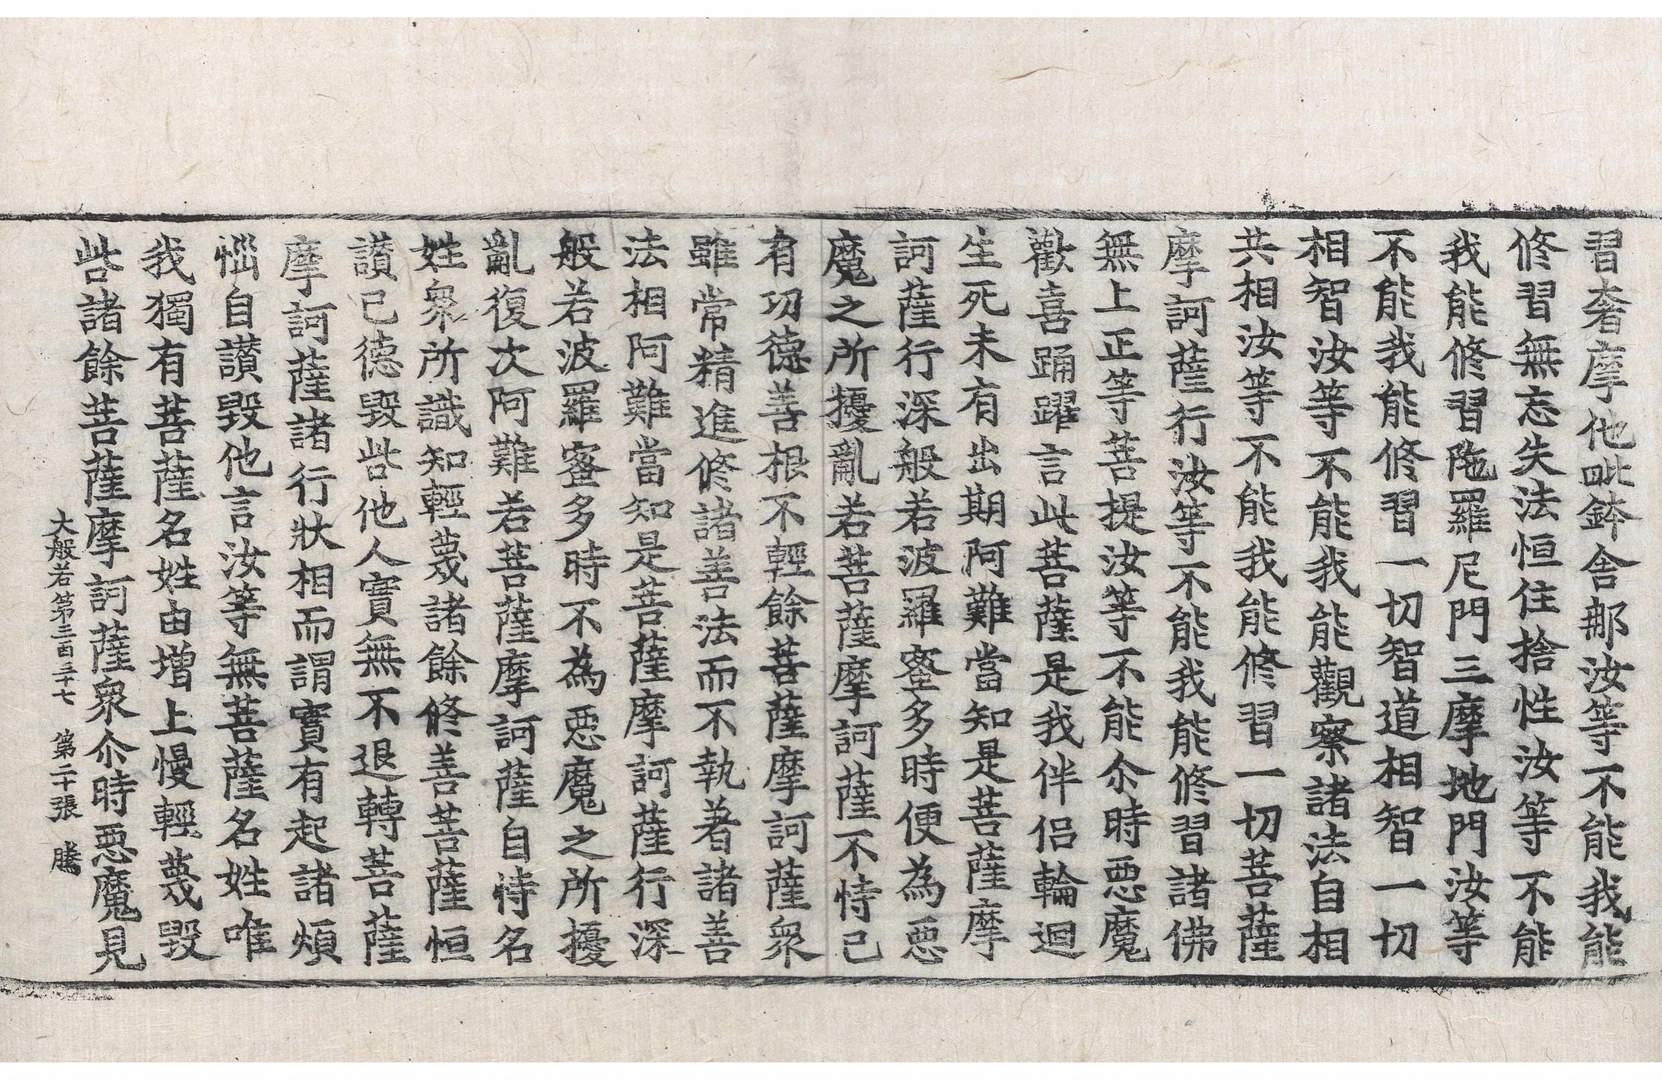 習奢摩他毗鉢舍那汝等不能我能
修習無忘失法恒住捨性汝等不能
我能修習陁羅尼門三摩地門汝等
不能我能修習一切智道相智一切
相智汝等不能我能觀察諸法自相
共相汝等不能我能修習一切菩薩
摩訶薩行汝等不能我能修習諸佛
無上正等菩提汝等不能尒時惡魔
歡喜踊躍言此菩薩是我伴侣輪迴
生死未有出期阿難當知是菩薩摩
訶薩行深般若波羅蜜多時便為惡
魔之所擾亂若菩薩摩訶薩不恃己
有功德善根不輕餘菩薩摩訶薩衆
雖常精進修諸善法而不執著諸善
法相阿難當知是菩薩摩訶薩行深
般若波羅蜜多時不為惡魔之所擾
亂復次阿難若菩薩摩訶薩自恃名
姓衆所識知輕蔑諸餘修善菩薩恒
讃己德毀呰他人實無不退轉菩薩
摩訶薩諸行狀相而謂實有起諸煩
惱自讃毀他言汝等無菩薩名姓唯
我獨有菩薩名姓由增上慢輕蔑毀
呰諸餘菩薩摩訶薩衆尒時惡魔見
大般若第三百三十七 第二十張 騰